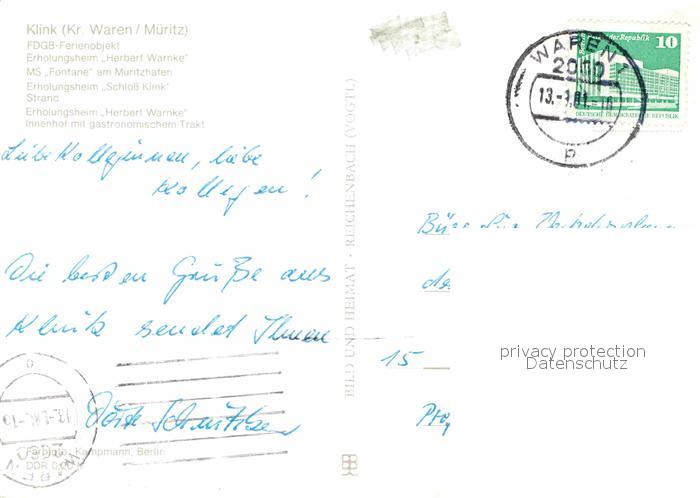 Klink (Kr. Waren / Müritz)
FDGB-Ferienobjekt
Erholungsheim „Herbert Warnke"
MS „Fontane" am Müritzhafen
Erholungsheim „Schloß Klink"
Strand
Erholungsheim „Herbert Warnke"
Innenhof mit gastronomischem Trakt
Liebe Kolleginnen, liebe
Kollegen!
Die besten Grüße aus
Klink sendet Ihnen
Farbfoto: Kampmann, Berlin
DDR
BILD UND HEIMAT · REICHENBACH (VOGTL)
WAREN 1
10
DEUTSCHE DEMOKRATISCHE REPUBLIK
Büro für
15
privacy protection
Datenschutz